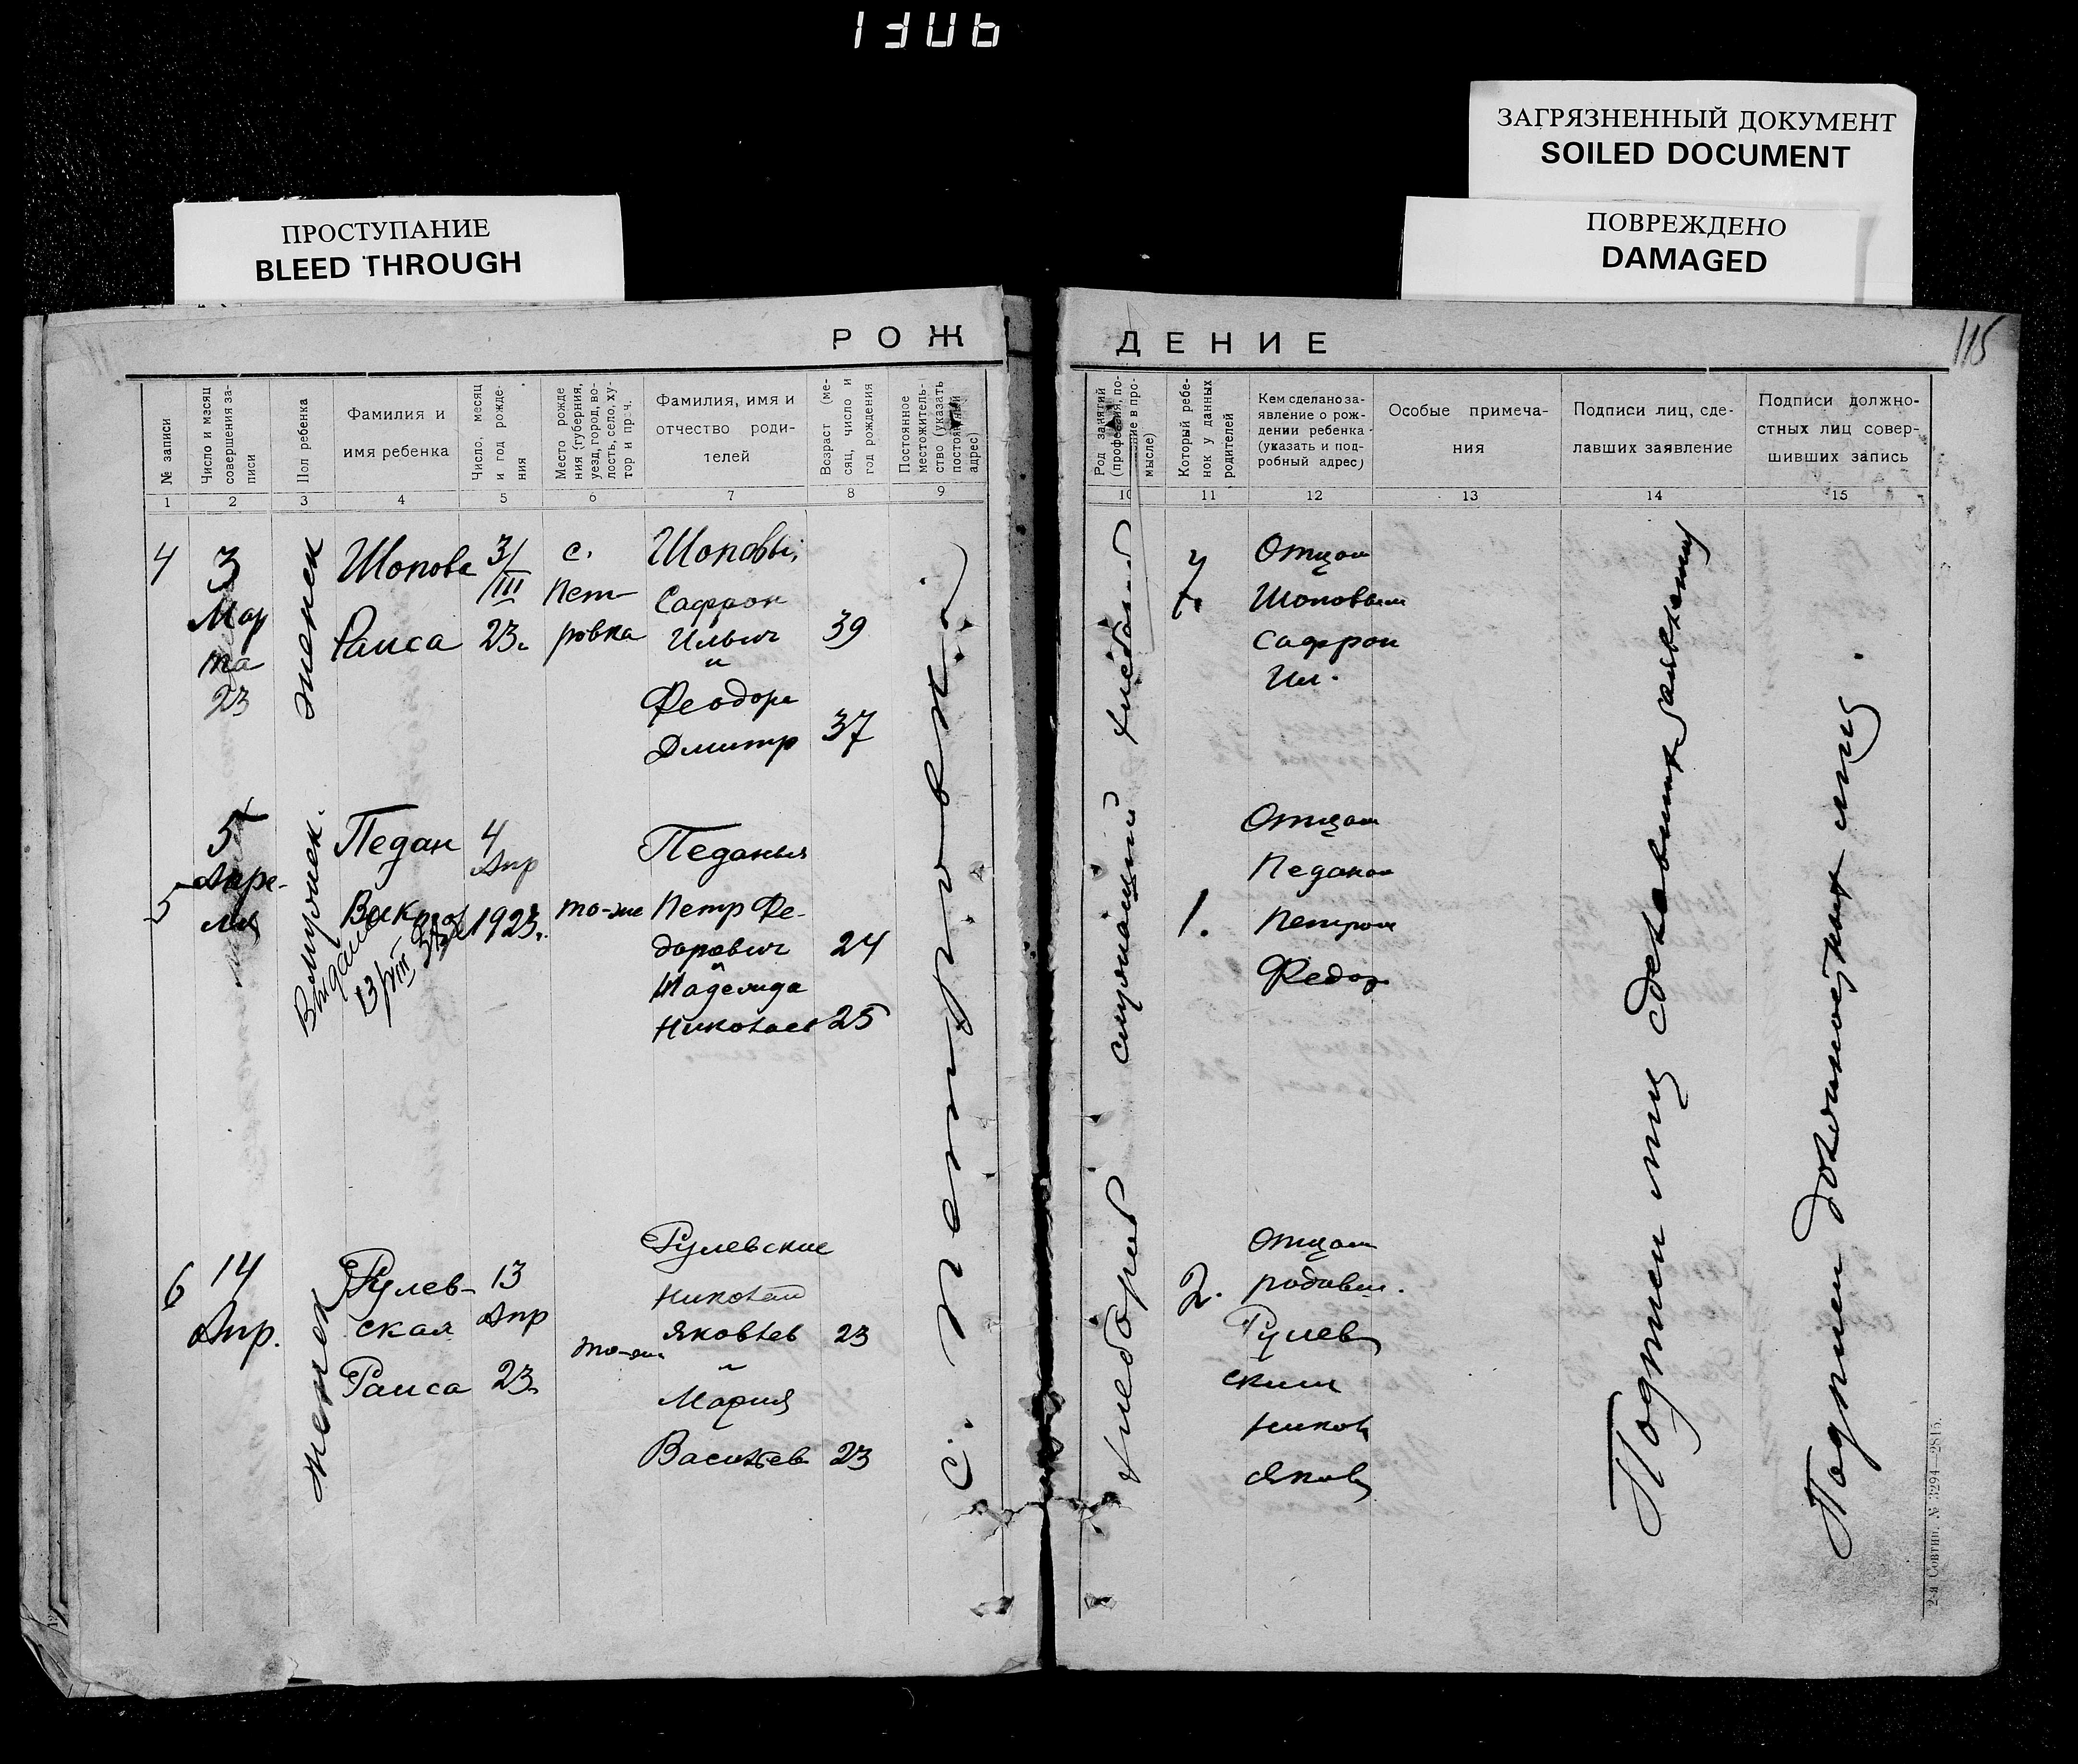 1306
ЗАГРЯЗНЕННЫЙ ДОКУМЕНТ
SOILED DOCUMENT
ПРОСТУПАНИЕ
BLEED THROUGH
ПОВРЕЖДЕНО
DAMAGED
115
РОЖ
ДЕНИЕ
№ записи
Число и месяц
совершения за-
писи
Пол ребенка
Фамилия и
имя ребенка
Число, месяц
и год рожде-
ния
Место рожде
ния (губерния,
уезд, город, во-
лость, село, ху-
тор и проч.
Фамилия, имя и
отчество роди-
телей
Возраст (ме-
сяц, число и
год рождения
Постоянное
местожитель-
ство (указать
постоянный
адрес)
Род занятий
(профессия, по-
ложение в про-
мысле)
Который ребе-
нок у данных
родителей
Кем сделано за-
явление о рож-
дении ребенка
(указать и под-
робный адрес)
Особые примеча-
ния
Подписи лиц, сде-
лавших заявление
Подписи должно-
стных лиц совер-
шивших запись
1 2 3 4 5 6 7 8 9
10 11 12 13 14 15
4
3
Мар
та
23
женск
Шопова
Раиса
3/III
23.
с.
Пет-
ровка
Шоповы,
Саффрон
Ильич
и
Феодора
Дмитр
39
37
7.
Отцом
Шоповым
Саффрон
Ил.
5
5
Апре-
ля
мужск.
Педан
Виктор
Выдано
13/VIII
4
Апр
1923.
то-же
Педанья
Петр Фе-
дорович
и
Николаев
24
25
1.
Отцом
Педаном
Петром
Федор
6
14
Апр.
женск
Гулев-
ская
Раиса
13
Апр
23.
то-же
Гулевские
Николай
Яковлев
и
Мария
Васильев
23
23
2.
Отцом
родавш.
Гулев
ским
Никол
Яков
с. Петровка
Хлебороб
служащий
Хлебороб
Подписи лиц сделавших заявление
Подписи должностных лиц.
2-я Совтип. № 3294—2815.